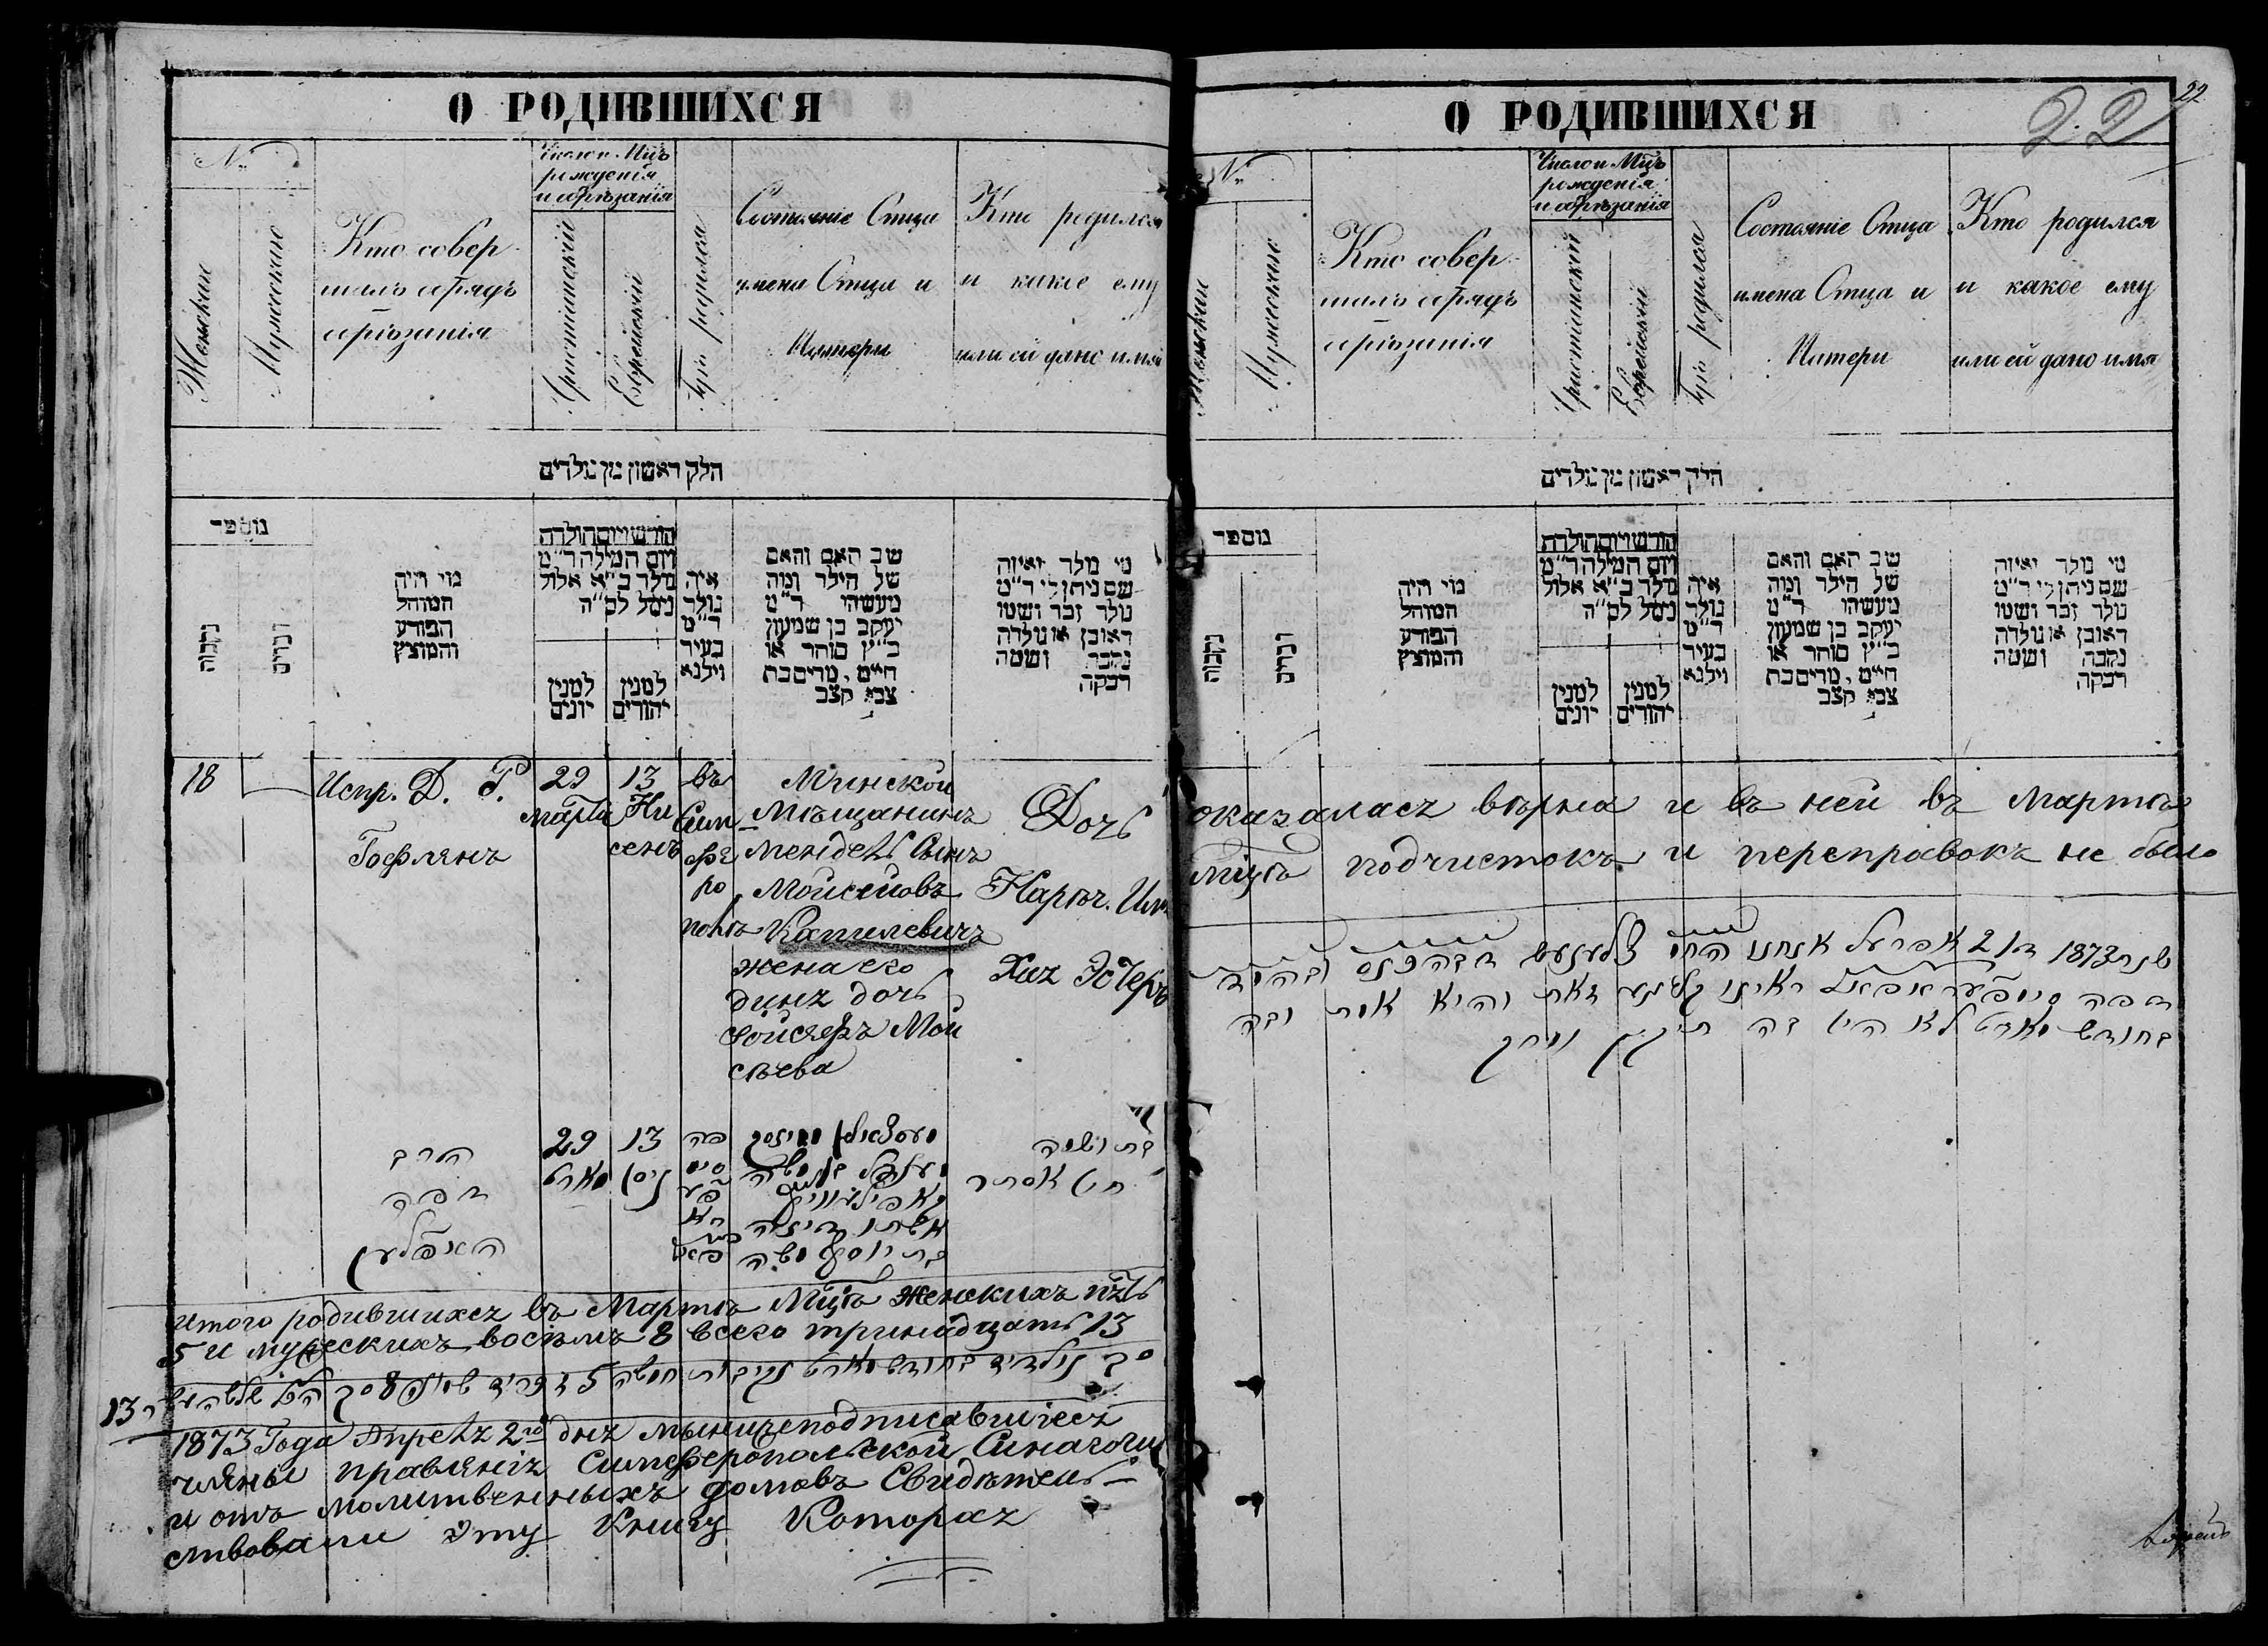 О РОДИВШИХСЯ
№
Женскаи
Мужескаю
Кто совер
шалъ обрядъ
обрѣзанія
Число и Мцъ
рожденія
и обрѣзанія
Христіанскій
Еврейскій
Гдѣ родился
Состояніе Отца
имена Отца и
Матери
Кто родился
и какое ему
или ей дано имя
חלק ראשון מן נולדים
מספר
נקבות
זכרים
מי היה
המוהל
הפורע
והמוצץ
חודש ויום הולדת
ויום המילה ד״מ
נולד כ״א אלול
נימל לס״ה
למנין
יונים
למנין
יהודים
איה
נולד
ד״מ
בעיר
וילנא
שב האם והאם
של הילד ומה
מעשהו ד״מ
יעקב בן שמעון
כ״ץ סוחר או
חיים, מרים בת
צבי קצב
מי נולד ואיזה
שם ניתן לו ד״מ
נולד זכר ושמו
ראובן או נולדה
נקבה ושמה
רבקה
18
Испр. Д. Р.
Гофлянъ
29
марта
13
Ни
сенъ
въ
Сим
фе
ро
полѣ
Минской
Мѣщанинъ
Мендель Сынъ
Мойсеіовъ
Капилевичъ
жена его
динз дочь
Іойсяфъ Мой
сѣева
Дочь
Нарѣч. Имя
Хая Эстеръ
הרב
דפה
האפלען
29
מארט
13
ניסן
פה
סימ
פע
רא
פאל
אשתו דינה
בת יוסף משה
בת ושמה
חי׳ אסתר
итого родившихся въ Мартѣ Мцѣ женскихъ пять
5 и мужескихъ восѣмъ 8 всего тринадцать 13
סך נולדים בחודש מארט נקבות חמשה 5 זכרים שמונה 8 סך הכל שלשה עשר 13
1873 Года Апреля 2го дня мы нижеподписавшіеся
члены правленія Симферопольской Синагоги
и отъ молитвенныхъ домовъ Свидѣтель-
ствовали эту Книгу Которая
22
О РОДИВШИХСЯ
22
№
Женскаи
Мужескаю
Кто совер
шалъ обрядъ
обрѣзанія
Число и Мцъ
рожденія
и обрѣзанія
Христіанскій
Еврейскій
Гдѣ родился
Состояніе Отца
имена Отца и
Матери
Кто родился
и какое ему
или ей дано имя
חלק ראשון מן נולדים
מספר
נקבות
זכרים
מי היה
המוהל
הפורע
והמוצץ
חודש ויום הולדת
ויום המילה ד״מ
נולד כ״א אלול
נימל לס״ה
למנין
יונים
למנין
יהודים
איה
נולד
ד״מ
בעיר
וילנא
שב האם והאם
של הילד ומה
מעשהו ד״מ
יעקב בן שמעון
כ״ץ סוחר או
חיים, מרים בת
צבי קצב
מי נולד ואיזה
שם ניתן לו ד״מ
נולד זכר ושמו
ראובן או נולדה
נקבה ושמה
רבקה
оказалась вѣрна и въ ней въ Мартѣ
мцѣ подчистокъ и переправокъ не было
שנת 1873 ד׳ 2 אפריל אנחנו
דפה סימפעראפאל ראינו זאת והיא
בחודש מארט לא היו בה תיקון ומחק